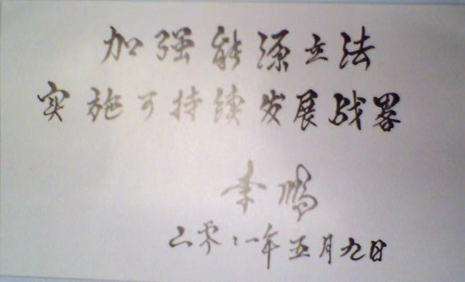 加强能源立法
实施可持续发展战略
李鹏
二零零一年五月九日